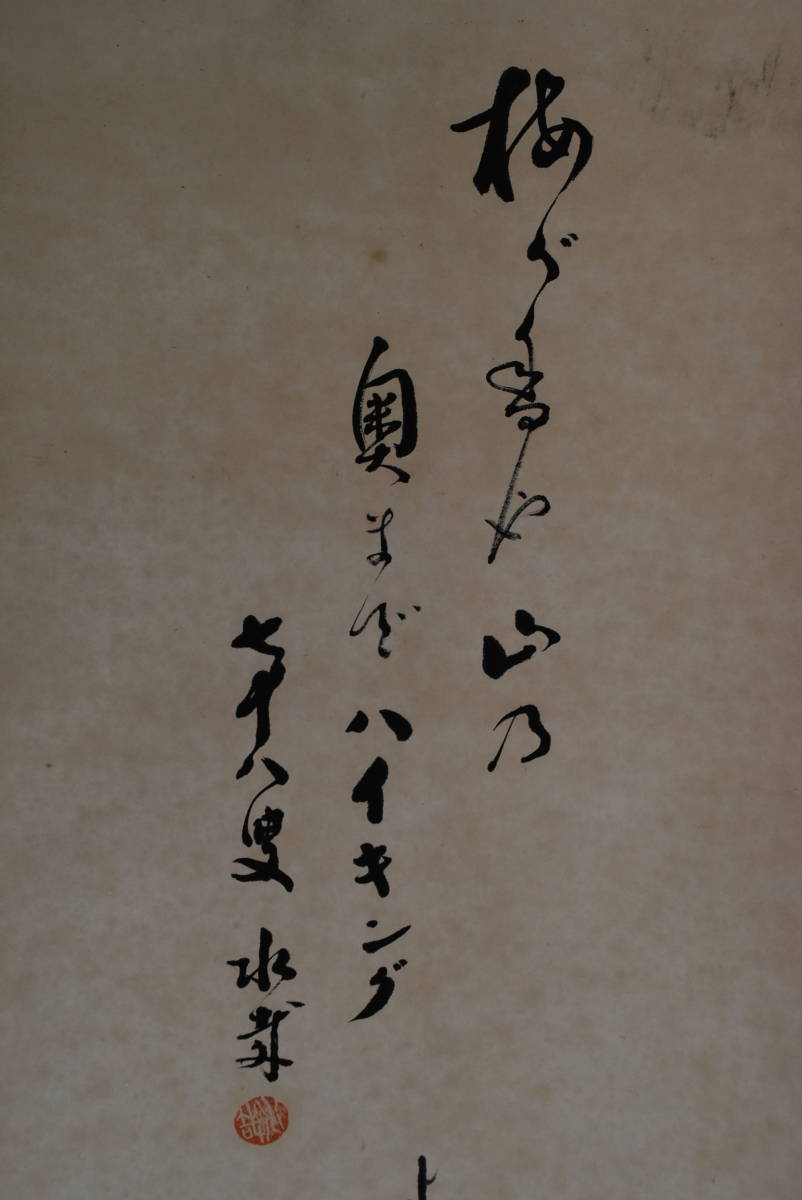 梅が香や山乃
奥までハイキング
七十八叟 水哉